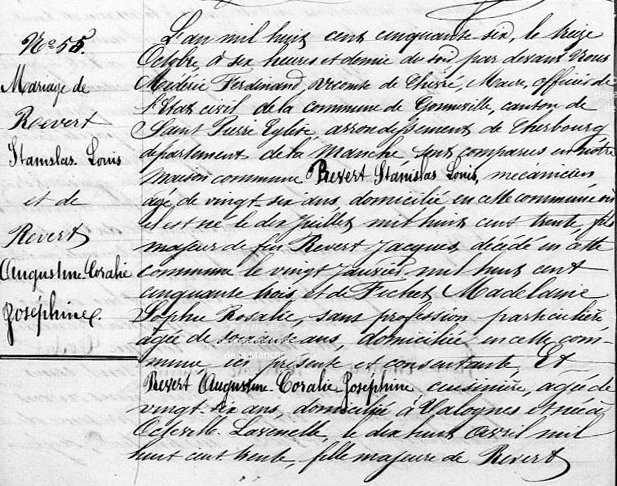 N° 55.
Mariage de
Revert
Stanislas Louis
et de
Revert
Augustine Coralie
Joséphine.
L'an mil huit cent cinquante six, le treize
Octobre, à six heures et demie du soir, par devant Nous
Médéric Ferdinand, vicomte de Maire, officier de
l'Etat civil de la commune de Gonneville, canton de
Saint Pierre Eglise, arrondissement de Cherbourg
département de la Manche sont comparus en notre
maison commune Revert Stanislas Louis, mécanicien
âgé de vingt six ans, domicilié en cette commune où
il est né le dix Juillet mil huit cent trente, fils
majeur de feu Revert Jacques décédé en cette
commune le vingt Janvier mil huit cent
cinquante trois, et de Madelaine
Sophie Rosalie, sans profession particulière
âgée de soixante ans, domiciliée en cette com-
mune, ici présente et consentante, Et
Revert Augustine Coralie Joséphine cuisinière, âgée de
vingt six ans, domiciliée à Valognes et née à
le dix huit Avril mil
huit cent trente, fille majeure de Revert